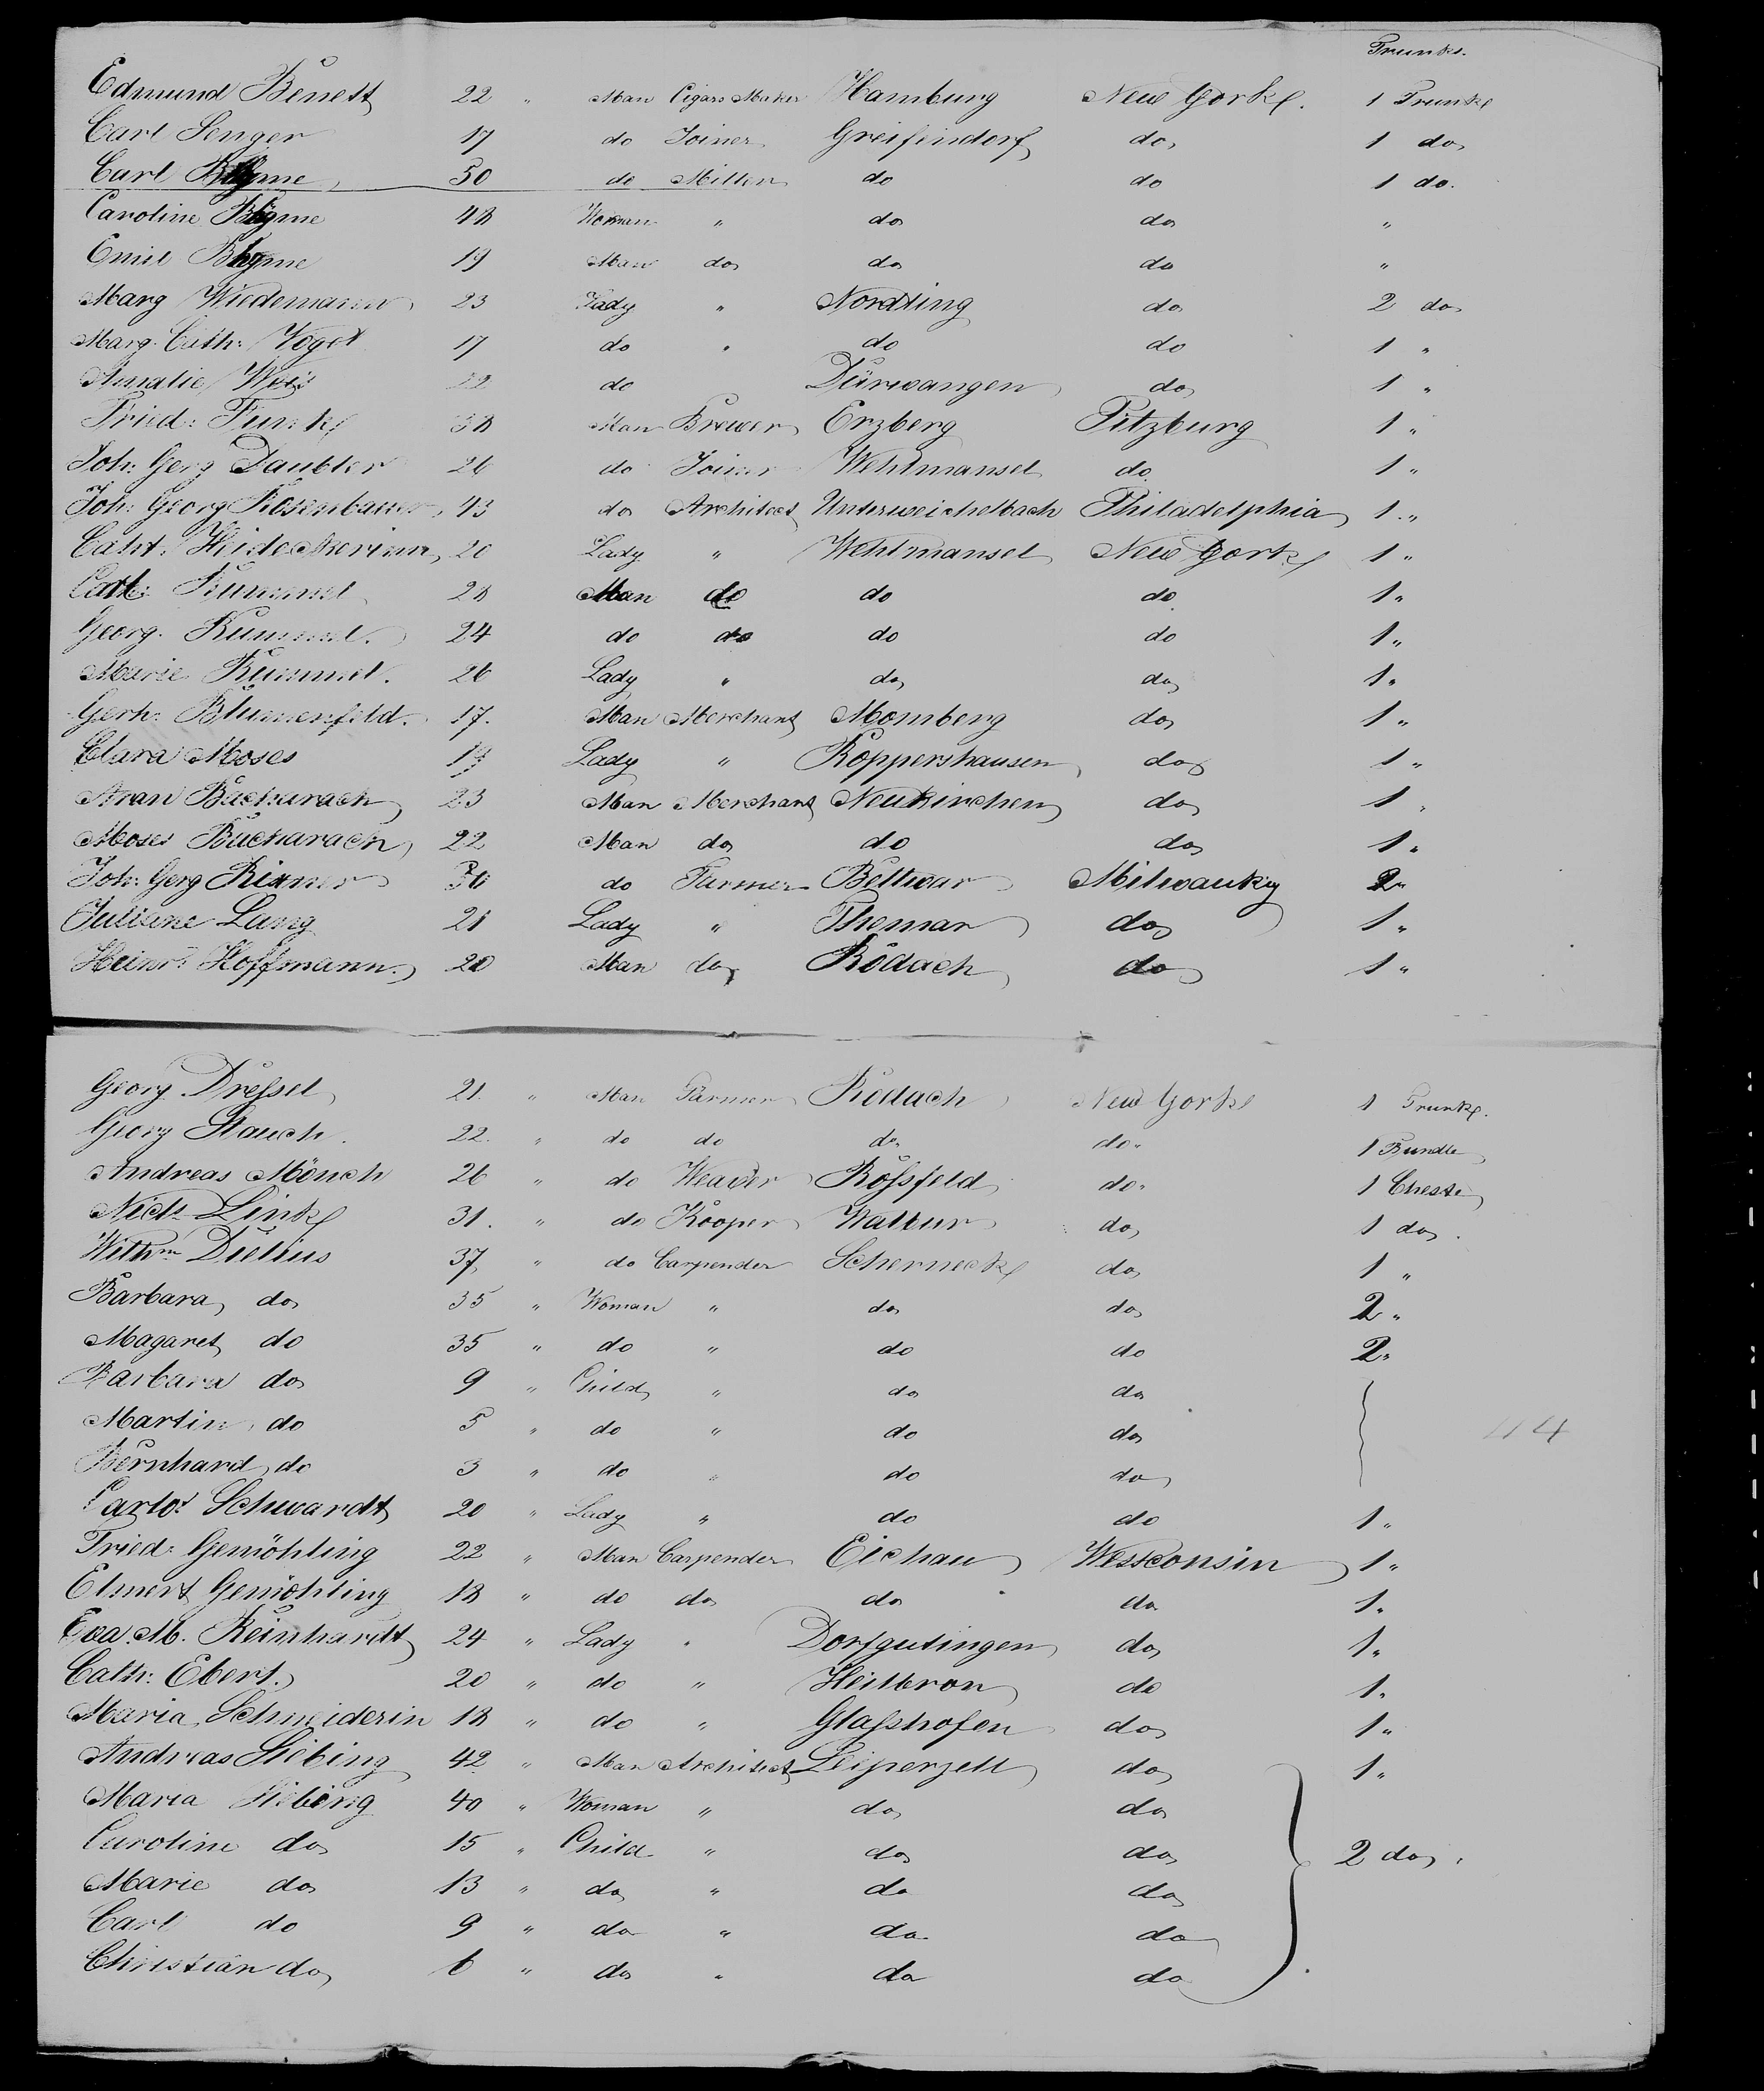 Trunks.
Edmund Benett 22 " Man Cigars Maker Hamburg New York. 1 Trunk
Carl Senger 17 do Joiner Greifendorf do 1 do
Carl 50 do Miller do do 1 do.
Caroline 48 Woman " do do "
Emil 19 Man do do do "
Marg Wiedemann 23 Lady " Nordling do 2 do
Marg. Cath: Vogel 17 do " do do 1 "
Amalie Weis 22 do Dürwangen do 1 "
Fried: Funk 38 Man Brewer Erzberg Pitzburg 1 "
Joh: Gerg Daubler 26 do Joiner Wehlmansel do 1 "
Joh: Georg Rosenbauer 43 do Architect Unterweichelbach Philadelphia 1 "
Caht: 20 Lady " Wehlmansel New York 1 "
Cath: Kummel 28 Man do do do 1 "
Georg. Kummel. 24 do do do do 1 "
Marie Kummel. 26 Lady " do do 1 "
Gerh: Blumenfeld. 17. Man Merchant Momberg do 1 "
Clara Moses 19 Lady " Roppershausen do 1 "
Aran Bacharach 23 Man Merchant Neukirchen do 1 "
Moses Bacharach 22 Man do do do 1 "
Joh: Gerg Rixner 36 do Farmer Bettwar Milwauky 2 "
Juliane Lang 21 Lady " Themar do 1 "
Heinr: Hoffmann. 20 Man do Rodach do 1 "
Georg Dreſsel 21. " Man Farmer Rodach New York 1 Trunk.
Georg Stauch. 22. " do do do do " 1 Bundle
Andreas Mönch 26 " do Weaver Roſsfeld do " 1 Cheste
Nicl: Link 31. " do Kooper Waltur do 1 do.
Wilhm Dielius 37 " do Carpender Scherneck do 1 "
Barbara do 35 " Woman " do do 2 "
Magaret do 35 " do " do do 2 "
Barbara do 9 " Child " do do
Martin do 5 " do " do do
Bernhard do 3 " do " do do
Schwardt 20 " Lady " do do 1 "
Fried: Gemöhling 22 " Man Carpender Eichau Westconsin 1 "
Elmert Gemöhling 18 " do do do do 1 "
Eva M. Reinhardt 24 " Lady " Dorfgutingen do 1 "
Cath: Ebert. 20 " do " Heilbron do 1 "
Maria Schneiderin 18 " do " Glaſshofen do 1 "
Andreas Siebing 42 " Man Architect Leiperzell do 1 "
Maria Siebing 40 " Woman " do do
Caroline do 15 " Child " do do 2 do.
Marie do 13 " do " do do
Carl do 9 " do " do do
Christian do 6 " do " do do